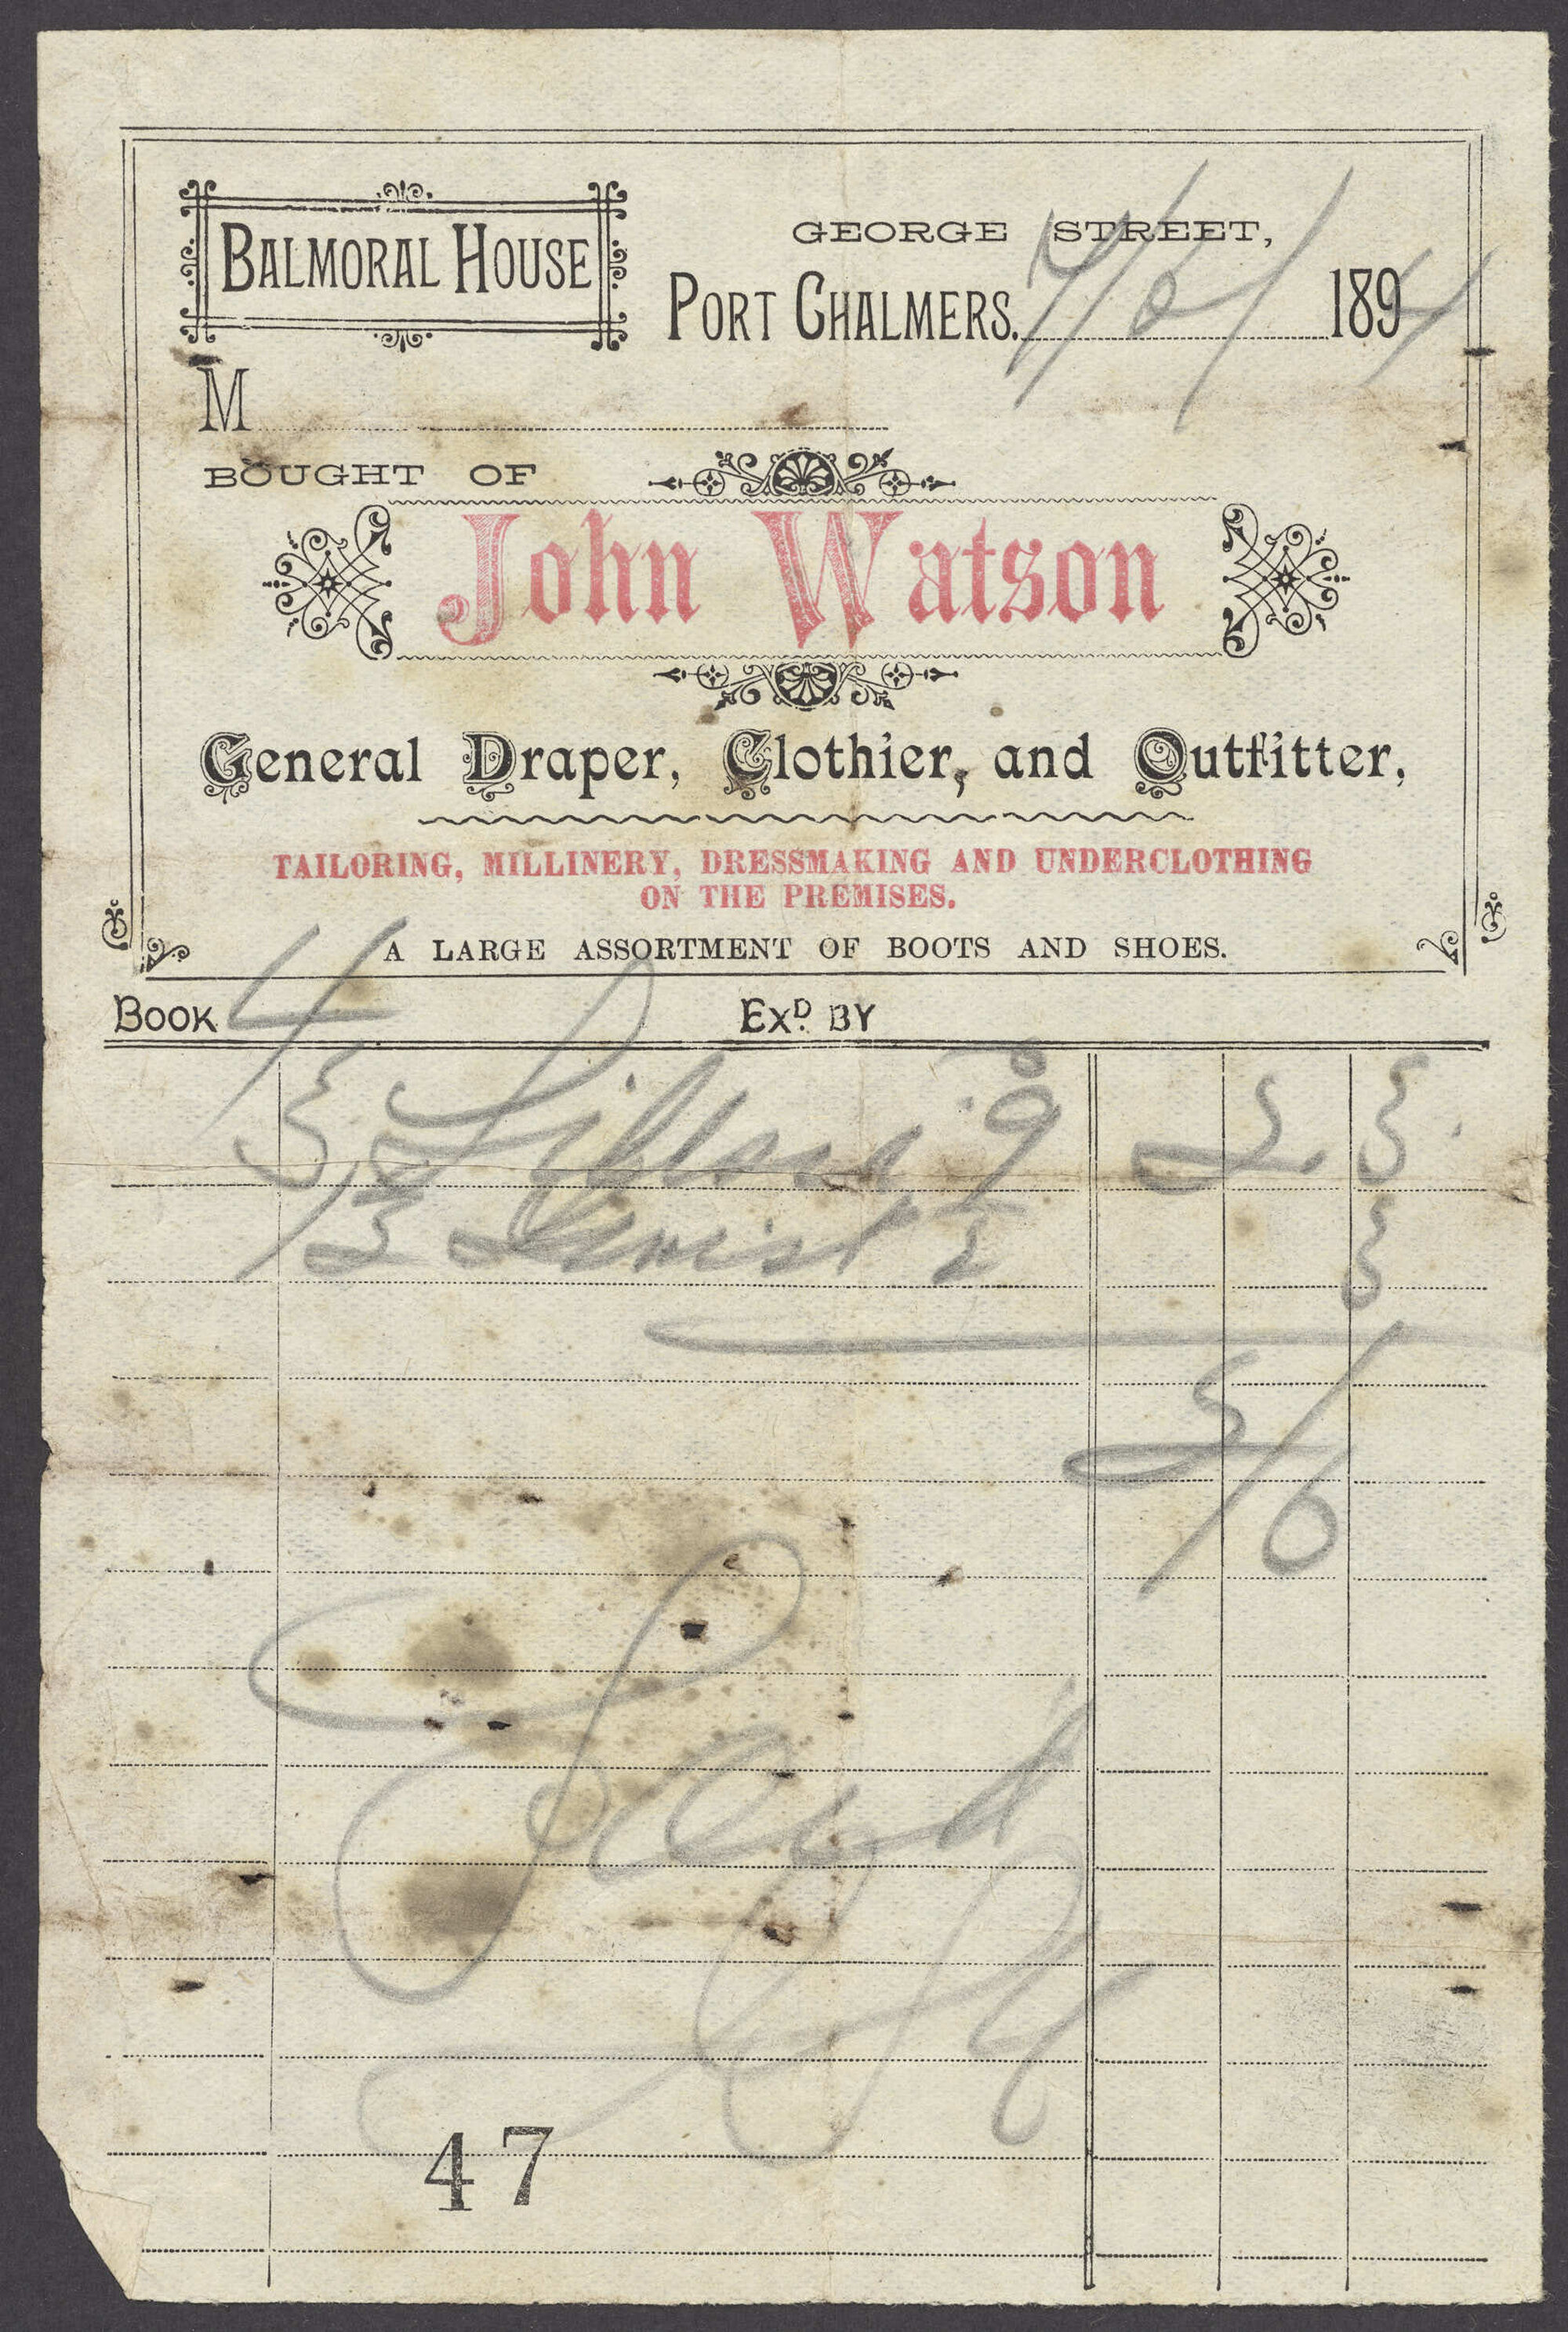 BALMORAL HOUSE
GEORGE STREET,
PORT CHALMERS. 189
M
BOUGHT OF
John Watson
General Draper, Clothier, and Outfitter,
TAILORING, MILLINERY, DRESSMAKING AND UNDERCLOTHING
ON THE PREMISES.
A LARGE ASSORTMENT OF BOOTS AND SHOES.
BOOK 4 EXD. BY
3 9 2. 3
3
2/6
Paid
47